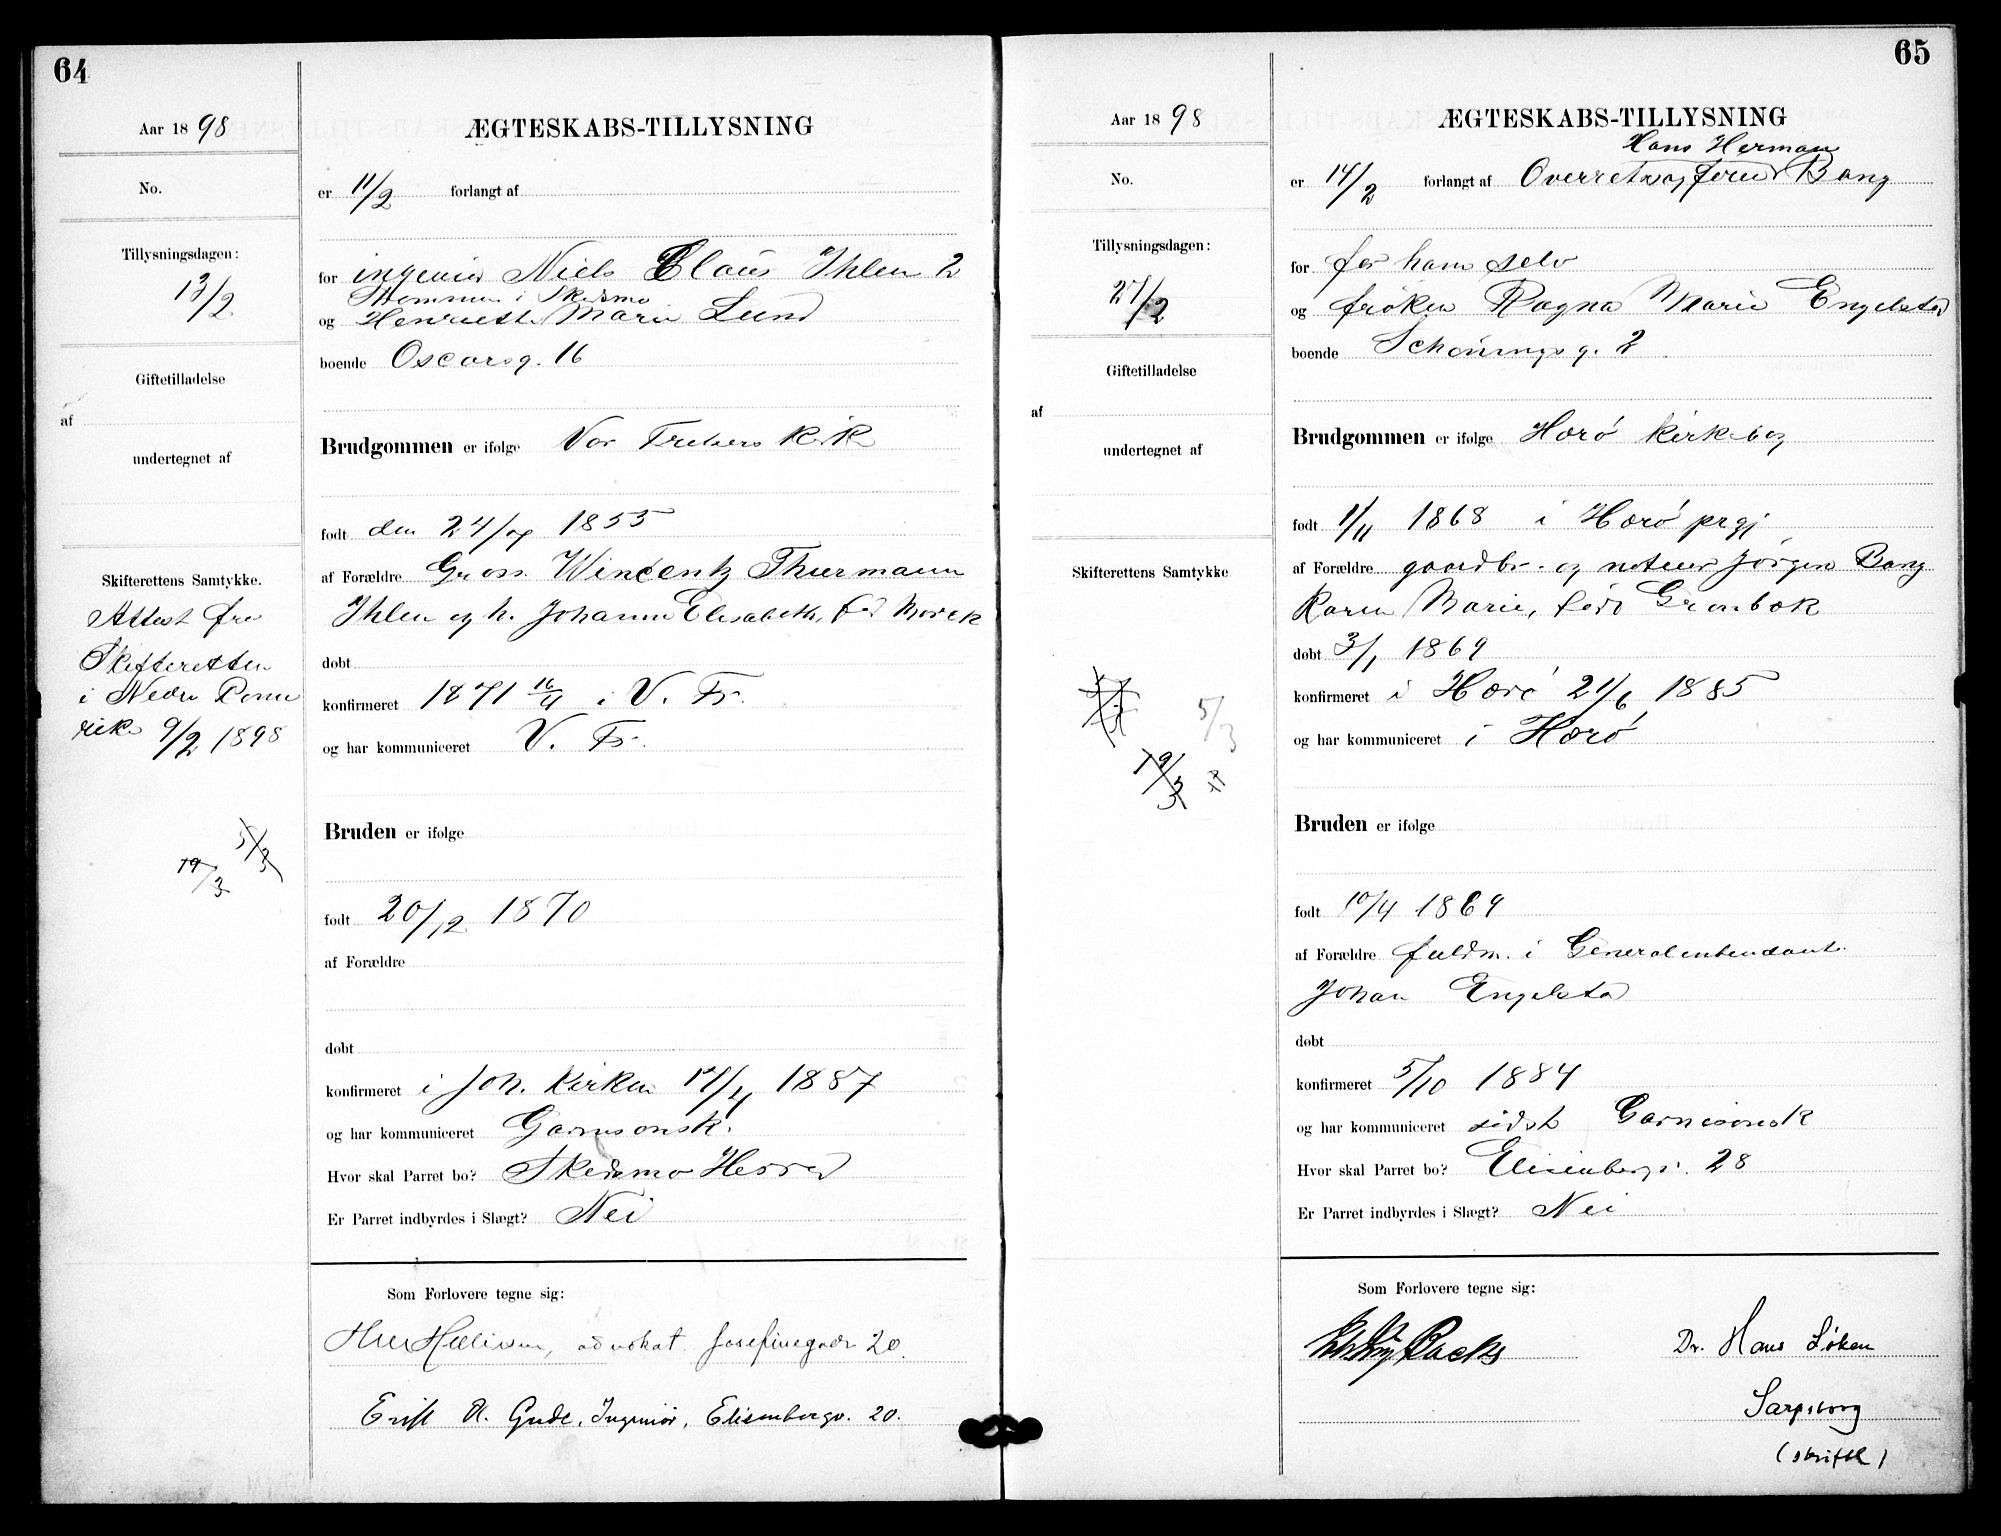 64
Aar 1898
No.
Tillysningsdagen:
13/2
Giftetilladelse
af
undertegnet af
Skifterettens Samtykke.
Attest fra
Skifteretten
i Nedre Rome
rike 9/2 1898
5/3
19/3
ÆGTESKABS-TILLYSNING
er 11/2 forlangt af
for ingeniør Niels Claus Ihlen 2
Strømmen i Skedsmo
og Henriette Marie Lund
boende Oscarsg. 16
Brudgommen er ifølge Vor Frelsers Kirke
født den 24/7 1855
af Forældre Gross. Wincentz Thurmann
Ihlen og h. Johanne Elisabeth, fød
døbt
konfirmeret 1871 16/4 i V. Fr.
og har kommuniceret V. Fr.
Bruden er ifølge
født 20/12 1870
af Forældre
døbt
konfirmeret i Joh. Kirken 17/4 1887
og har kommuniceret Garnisonsk.
Hvor skal Parret bo? Skedsmo Herred
Er Parret indbyrdes i Slægt? Nei
Som Forlovere tegne sig:
advokat Josefinegade 20.
H. Gude, Ingeniør, Elisenbergv. 20.
65
Aar 1898
No.
Tillysningsdagen:
27/2
Giftetilladelse
af
undertegnet af
Skifterettens Samtykke
5/3
19/3
ÆGTESKABS-TILLYSNING
Hans Herman
er 14/2 forlangt af Overretssagfører Bang
for for ham selv
og frøken Ragna Marie Engelstad
boende Schøningsg. 2
Brudgommen er ifølge Herø Kirkebog
født 1/11 1868 i Herø prgj.
af Forældre gaardbr. og noteier Jørgen Bang
Karen Marie, født Grønbæk
døbt 3/1 1869
konfirmeret i Herø 21/6 1885
og har kommuniceret i Herø
Bruden er ifølge
født 10/4 1869
af Forældre fuldm. i Generalintendant.
Johan Engelstad
døbt
konfirmeret 5/10 1884
og har kommuniceret sidst Garnisonsk
Hvor skal Parret bo? Elisenbergv. 28
Er Parret indbyrdes i Slægt? Nei
Som Forlovere tegne sig:
Dr. Hans Løken
Sarpsborg
(skriftl)